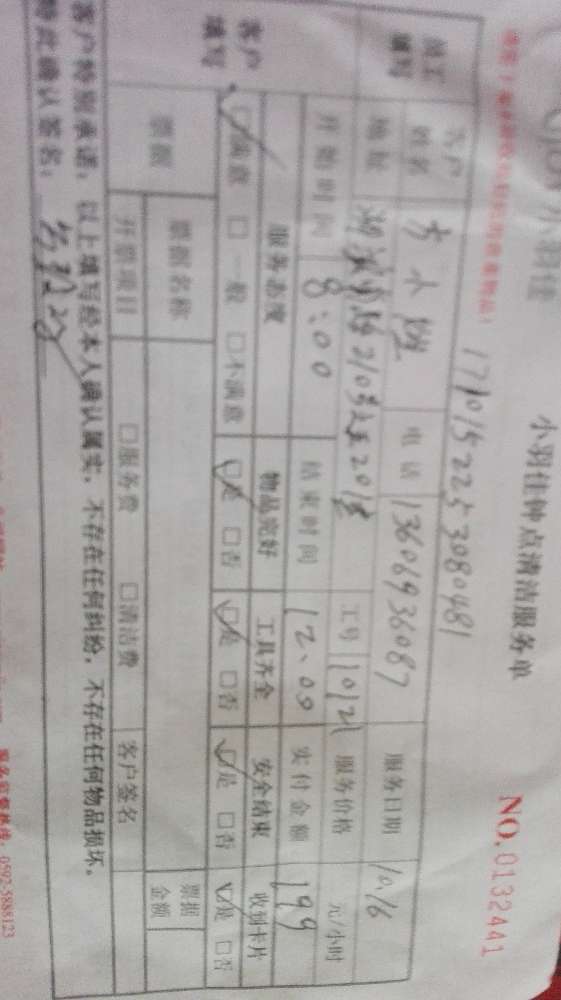 小羽佳
小羽佳钟点清洁服务单
NO.0132441
17101522253080481
员工填写
客户姓名 电话 13606936087 服务日期 10.16
地址 210号 201 工号 服务价格 元/小时
开始时间 8:00 结束时间 12:00 实付金额 199
客户填写
服务态度 物品完好 工具齐全 安全结束 收到卡片
☑满意 □一般 □不满意 ☑是 □否 ☑是 □否 ☑是 □否 ☑是 □否
票据 票据名称 票据金额
开票项目 □服务费 □清洁费 客户签名
客户特别承诺：以上填写经本人确认属实，不存在任何纠纷，不存在任何物品损坏。
特此确认签名：
服务监督热线：0592-5888123